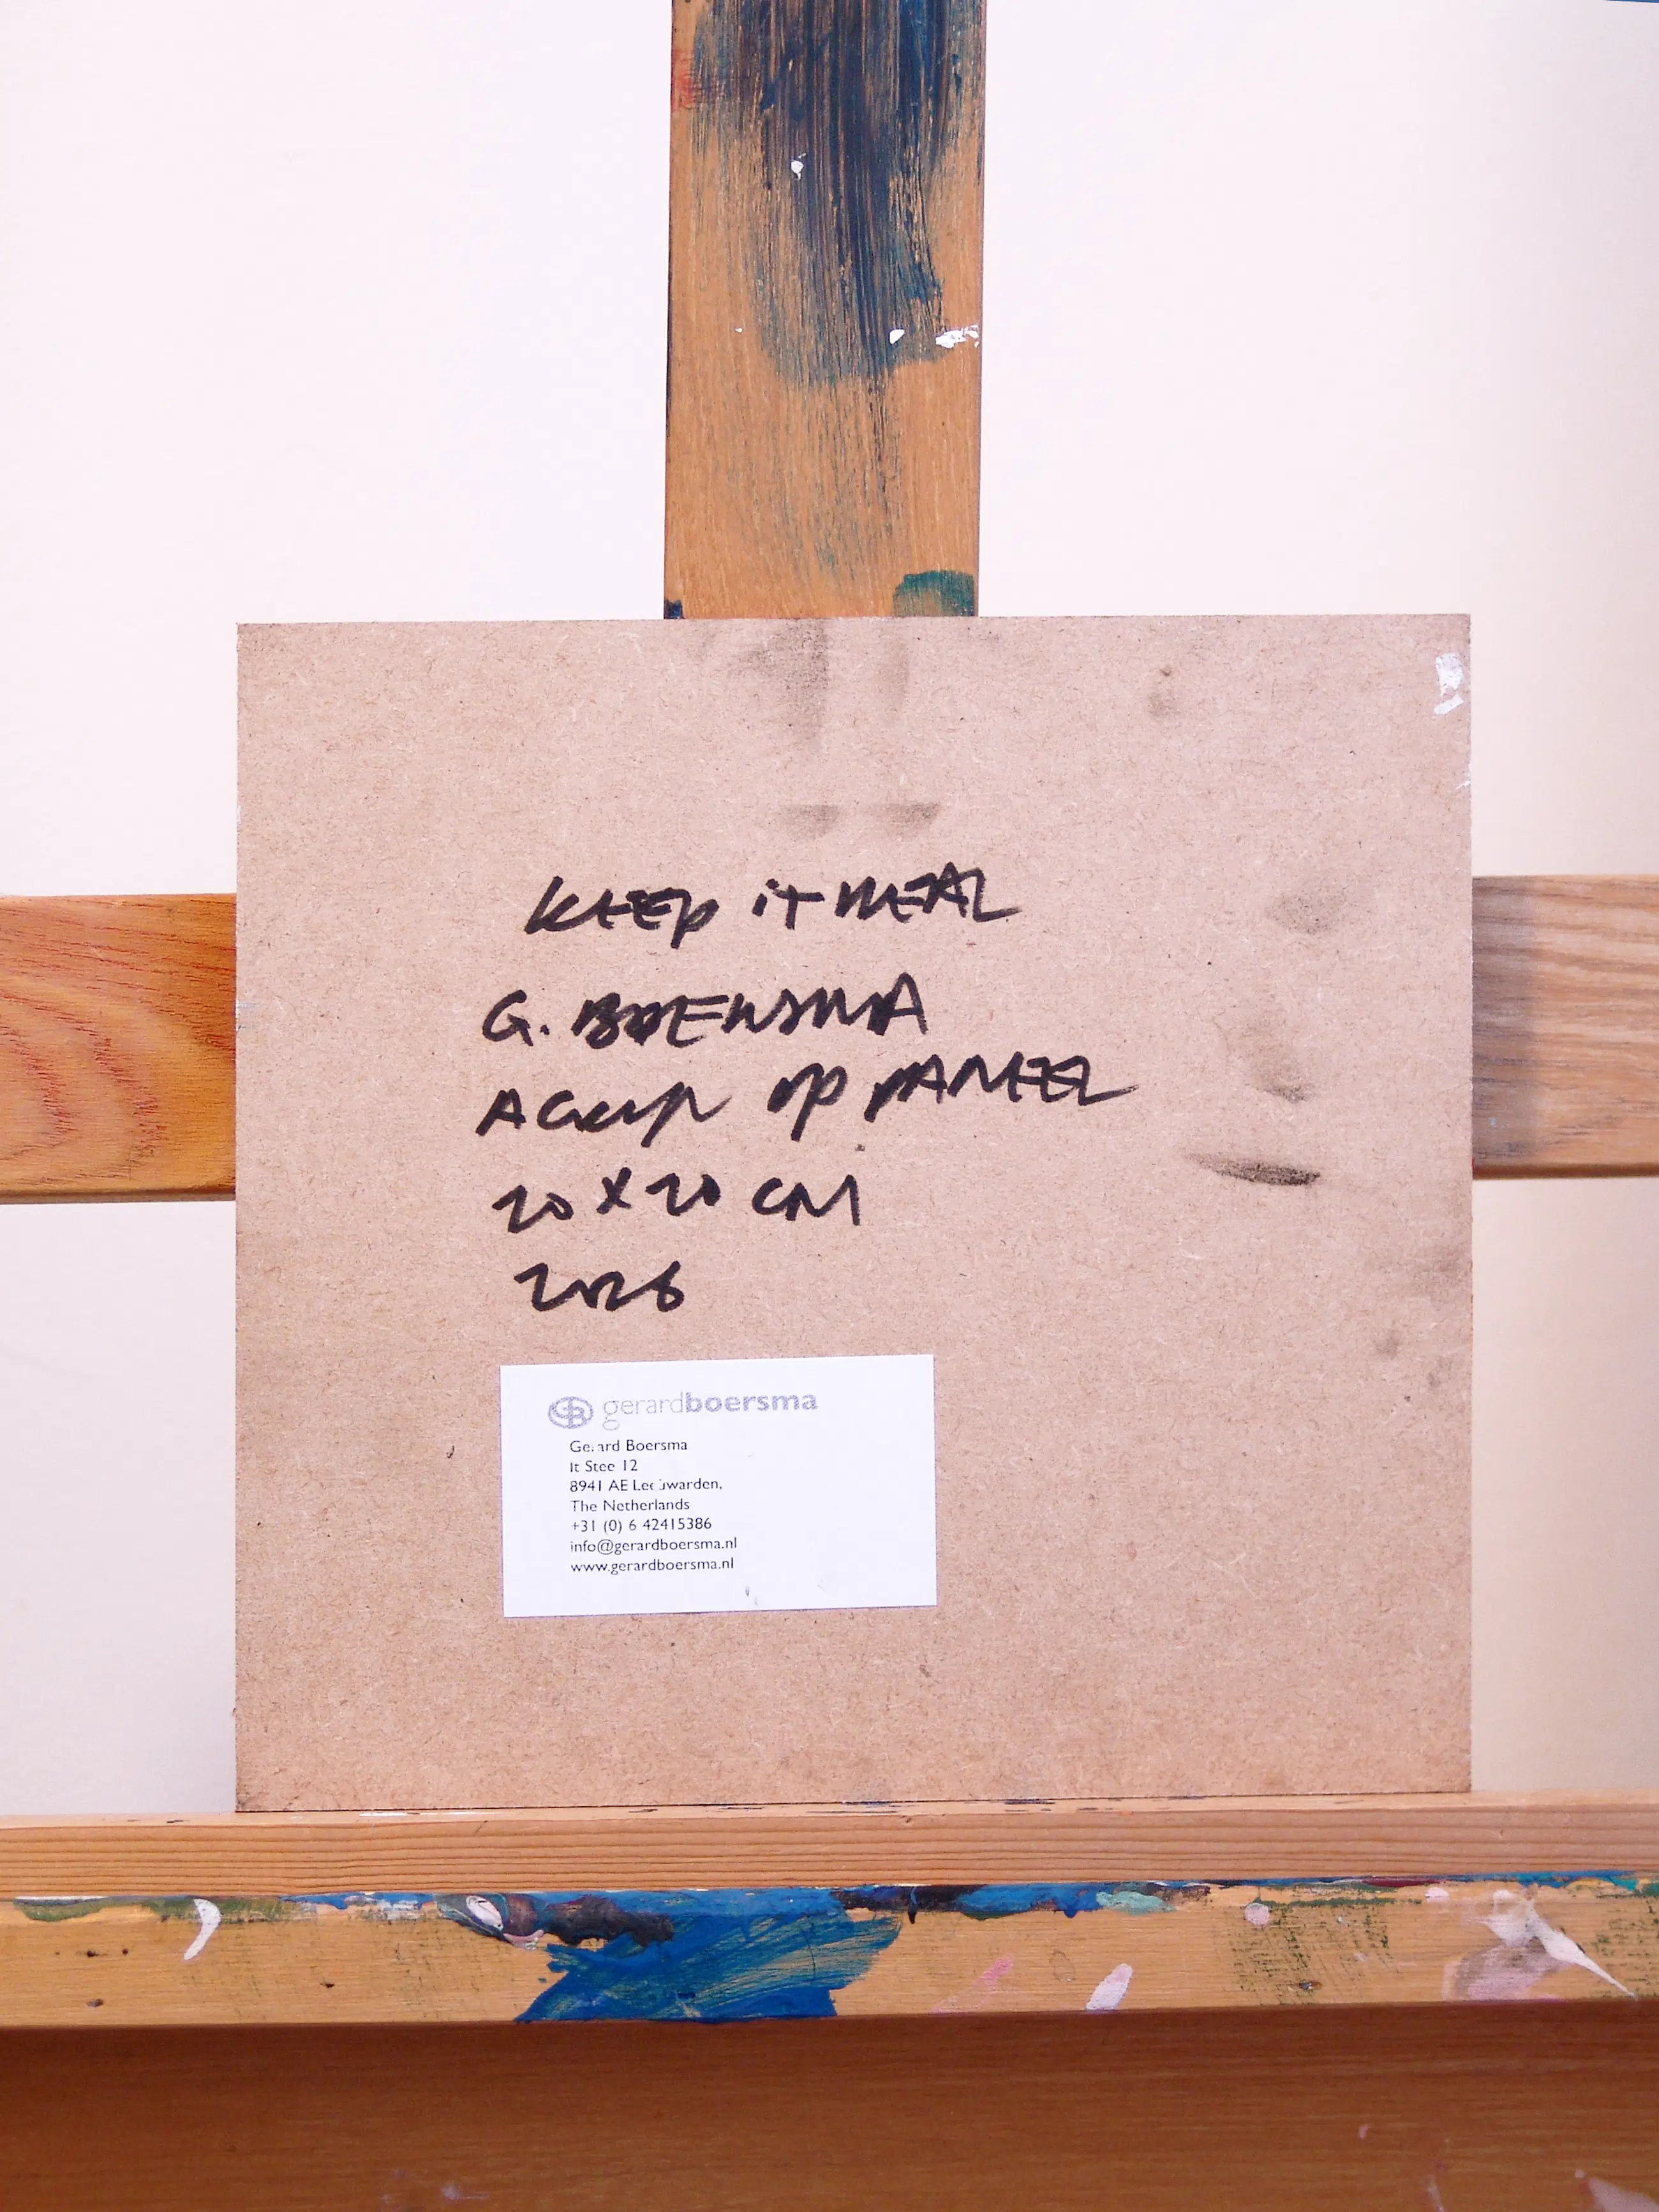 KEEP it REAL
G. BOERSMA
ACRYL OP PANEEL
20 X 20 CM
2026
GB gerardboersma
Gerard Boersma
It Stee 12
8941 AE Leeuwarden,
The Netherlands
+31 (0) 6 42415386
info@gerardboersma.nl
www.gerardboersma.nl